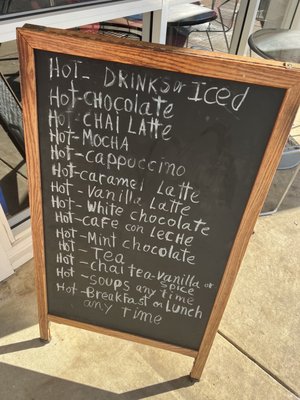 Hot- DRINKS or Iced
Hot-CHOCOLATE
Hot-CHAI LAtte
Hot-MOCHA
Hot-CAPPUCCINO
Hot-caramel Latte
Hot-Vanilla Latte
Hot- White chocolate
Hot-cafe con Leche
Hot-Mint chocolate
Hot- Tea
Hot-chai tea-vanilla or
spice
Hot-soups any time
Hot-Breakfast or Lunch
any time